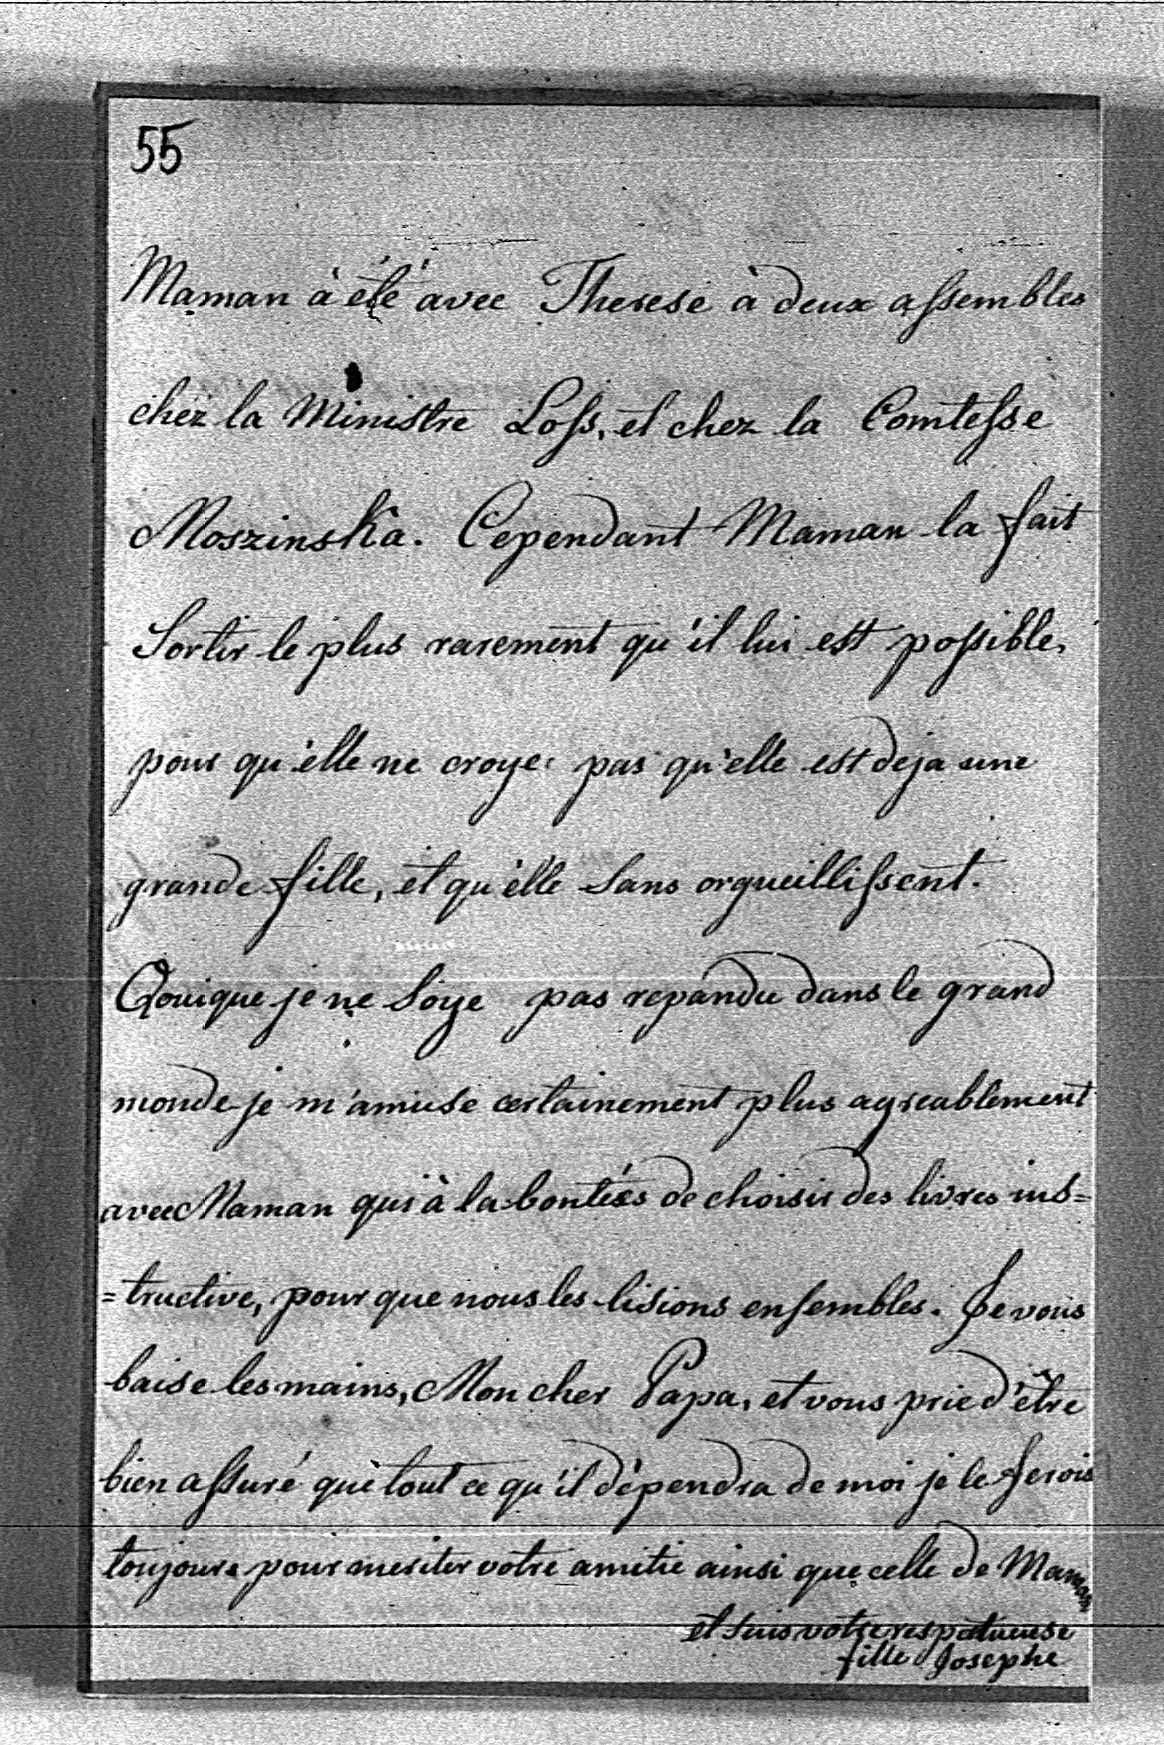 55
Maman à été avec Therese à deux assembles
chez la Ministre Loss, et chez la Comtesse
Moszinska. Cependant Maman la fait
Sortir le plus rarement qu'il lui est possible,
pour qu'elle ne croye pas qu'elle est deja une
grande fille, et qu'elle sans orgueillissent.
Qouique je ne Soye pas repandu dans le grand
monde je m'amuse certainement plus agreablement
avec Maman qui à la bontées de choisir des livres ins=
=tructive, pour que nous les lisions ensembles. Je vous
baise les mains, Mon cher Papa, et vous prie d'être
bien assuré que tout ce qu'il dépendra de moi je le ferois
toujours pour meriter votre amitie ainsi que celle de Maman
et suis votre respetueuse
fille Josephe